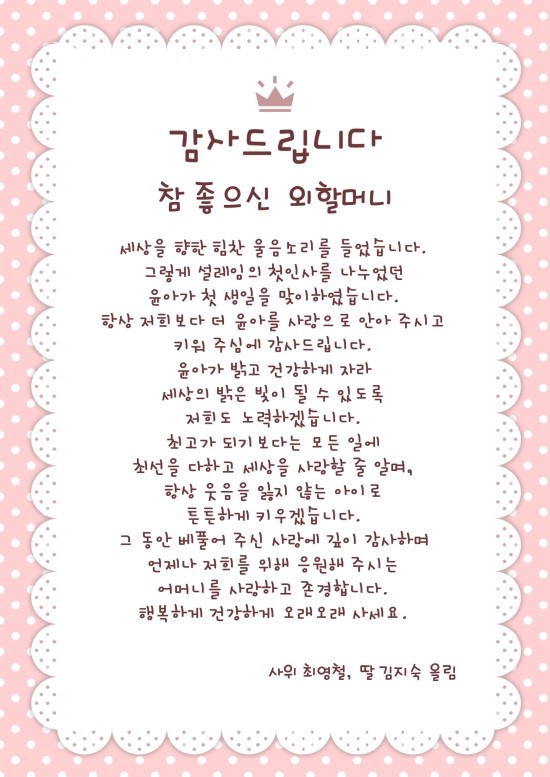 감사드립니다
참 좋으신 외할머니
세상을 향한 힘찬 울음소리를 들었습니다.
그렇게 설레임의 첫인사를 나누었던
윤아가 첫 생일을 맞이하였습니다.
항상 저희보다 더 윤아를 사랑으로 안아 주시고
키워 주심에 감사드립니다.
윤아가 밝고 건강하게 자라
세상의 밝은 빛이 될 수 있도록
저희도 노력하겠습니다.
최고가 되기보다는 모든 일에
최선을 다하고 세상을 사랑할 줄 알며,
항상 웃음을 잃지 않는 아이로
튼튼하게 키우겠습니다.
그 동안 베풀어 주신 사랑에 깊이 감사하며
언제나 저희를 위해 응원해 주시는
어머니를 사랑하고 존경합니다.
행복하게 건강하게 오래오래 사세요.
사위 최영철, 딸 김지숙 올림